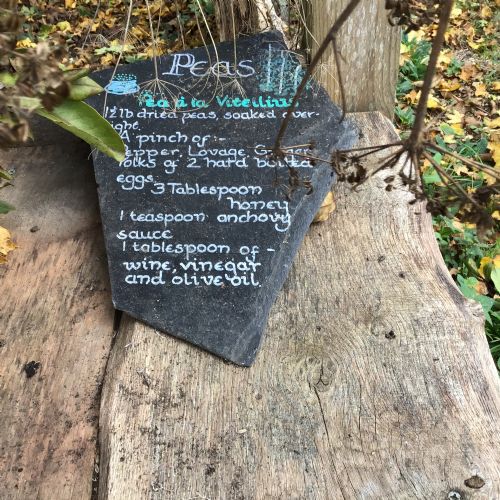 Peas
Vitellius
1½ lb dried peas, soaked over-
night.
A pinch of:-
Pepper, Lovage,
Yolks of 2 hard boiled
eggs
3 Tablespoon
honey
1 teaspoon anchovy
sauce
1 tablespoon of -
wine, vinegar
and olive oil